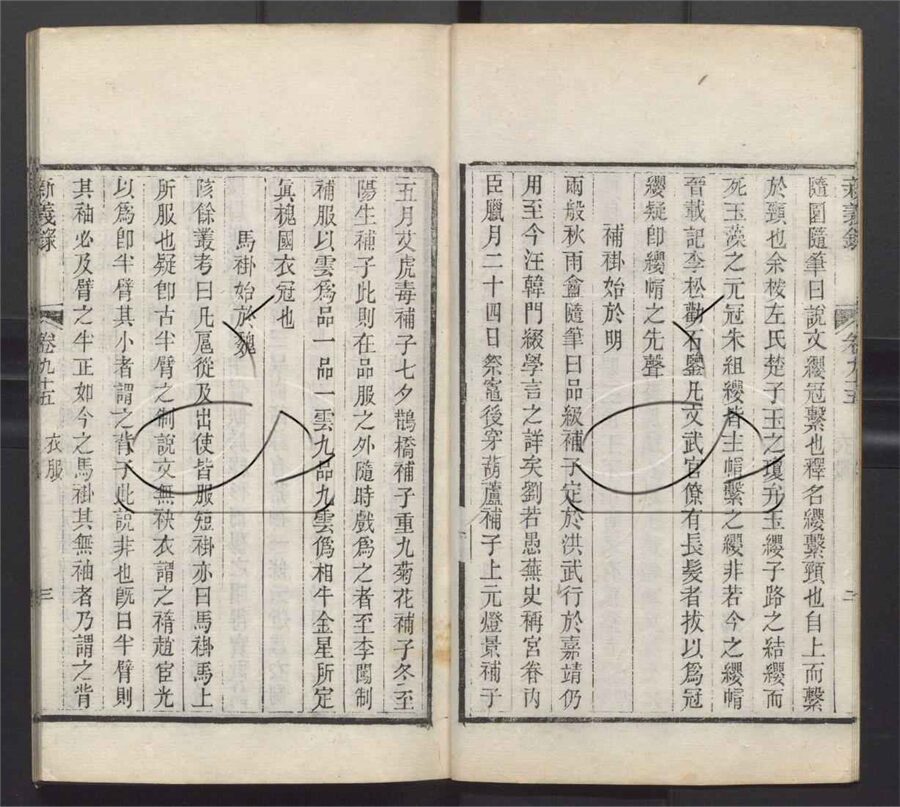 隨園隨筆曰說文纓冠繫也釋名纓繫頸也自上而繫
於頸也余按左氏楚子玉之瓊弁玉纓子路之結纓而
死玉藻之元冠朱組纓皆主帽繫之纓非若今之纓帽
晉載記李松勸石鑒凡文武官僚有長髮者拔以爲冠
纓疑卽纓帽之先聲
補褂始於明
雨般秋雨盦隨筆曰品級補子定於洪武行於嘉靖仍
用至今汪韓門綴學言之詳矣劉若愚蕪史稱宮眷內
臣臘月二十四日祭竈後穿葫蘆補子上元燈景補子
五月艾虎毒補子七夕鵲橋補子重九菊花補子冬至
陽生補子此則在品服之外隨時戲爲之者至李闖制
補服以雲爲品一品一雲九品九雲僞相牛金星所定
眞槐國衣冠也
馬褂始於魏
陔餘叢考曰凡扈從及出使皆服短褂亦曰馬褂馬上
所服也疑卽古半臂之制說文無袂衣謂之䙃趙宦光
以爲卽半臂其小者謂之背子此說非也旣曰半臂則
其袖必及臂之半正如今之馬褂其無袖者乃謂之背
新義錄 卷九十五 衣服 三